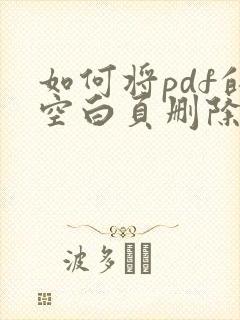 如何将pdf的
空白页删除
波多